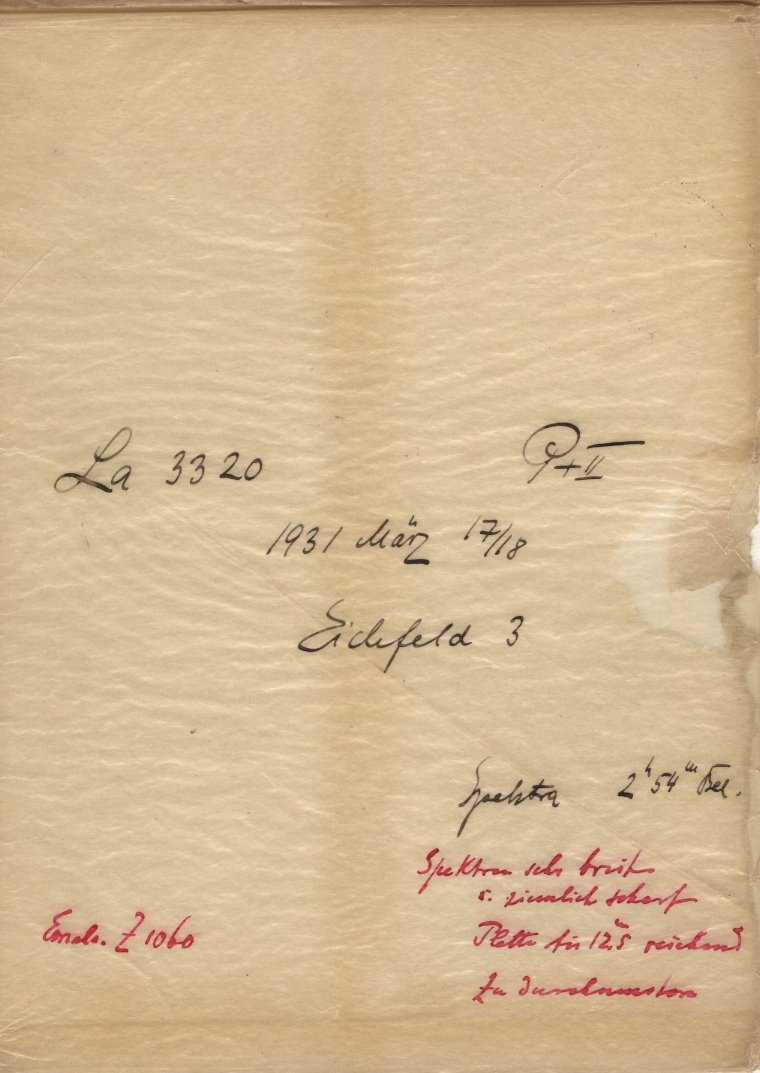 La 3320
P+II
1931 März 17/18
Eichfeld 3
Spektra 2ʰ 54ᵐ Bel.
Spektren sehr breit
u. ziemlich scharf
Platte bis 12ᵐ.5 reichend
Z 1060
zu durchmustern